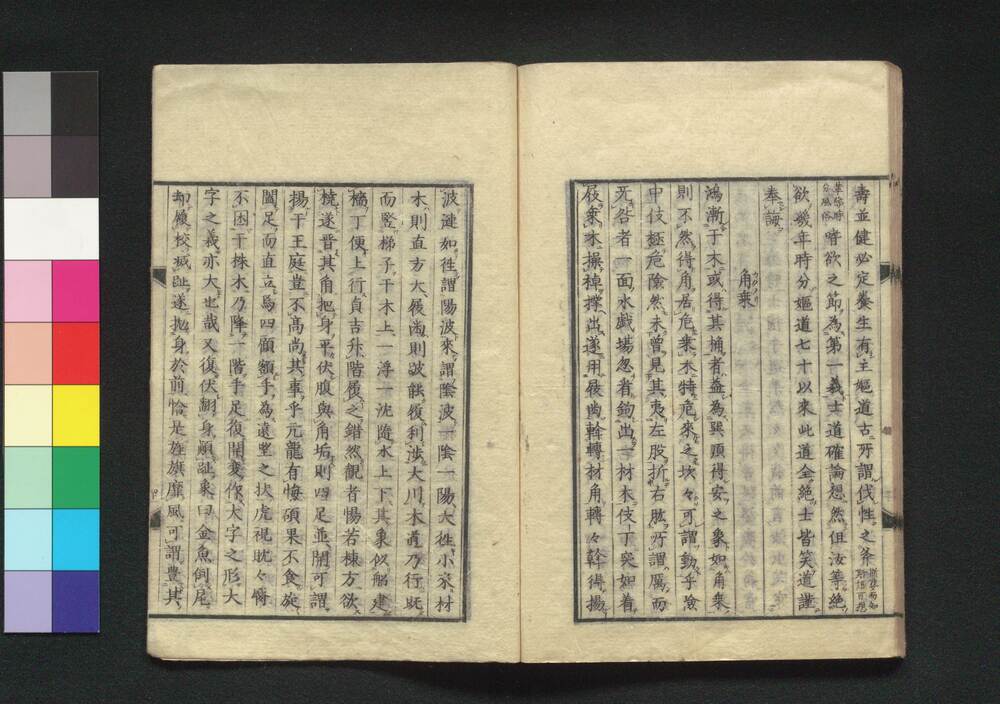 壽並健必定養生有主嫗道古所謂伐性之斧
時欲之節為第一義士道確論想然但汝等絕
欲幾年時分嫗道七十以來此道全絕士皆笑道謹
奉誨
角乗
鴻漸于木或得其桷者益為巽順得安之象如角乗
則不然得角居危乗木特危來之坎々可謂動乎險
中伎極危險然未曾見其夷左股折右肱所謂厲而
无咎者一面水戲場忽看鉤出一材木伎丁突如着
屐乗木操棹撑出遂用屐齒斡轉材角轉々斡得揚
波漣如徃謂陽波來謂陰波一陰一陽大徃小來材
木則直方大履齒則跛能履利渉大川木道乃行既
而竪梯子于木上一浮一沈隨水上下其象似船建
檣丁便上行貞吉升階履之錯然観者惕若棟方欲
橈遂晋其角把身平伏腹與角垢則四足並開可謂
揚于王庭豈不高尚其事乎亢龍有悔碩果不食旋
闔足而直立為四顧額手為遠望之状虎視眈々臀
不困于株木乃降一階手足復開変作大字之形大
字之義亦大也哉又復伏翻身順趾象曰金魚倒尾
却履校滅趾遂抛身於前恰是旌旗靡風可謂豊其